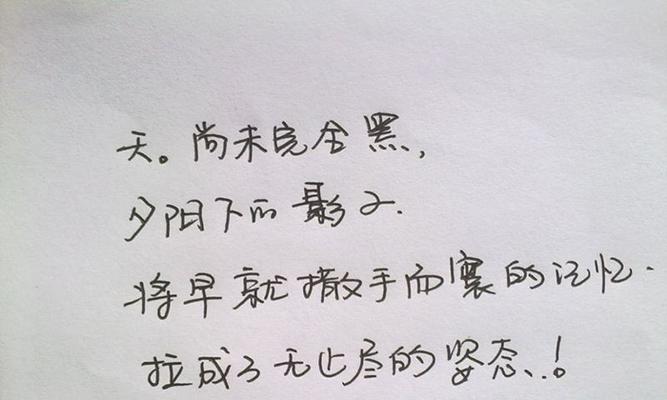 天。尚未完全黑,
夕阳下的影子.
将早就撒手而寰的记忆.
拉成了无止尽的姿态..!